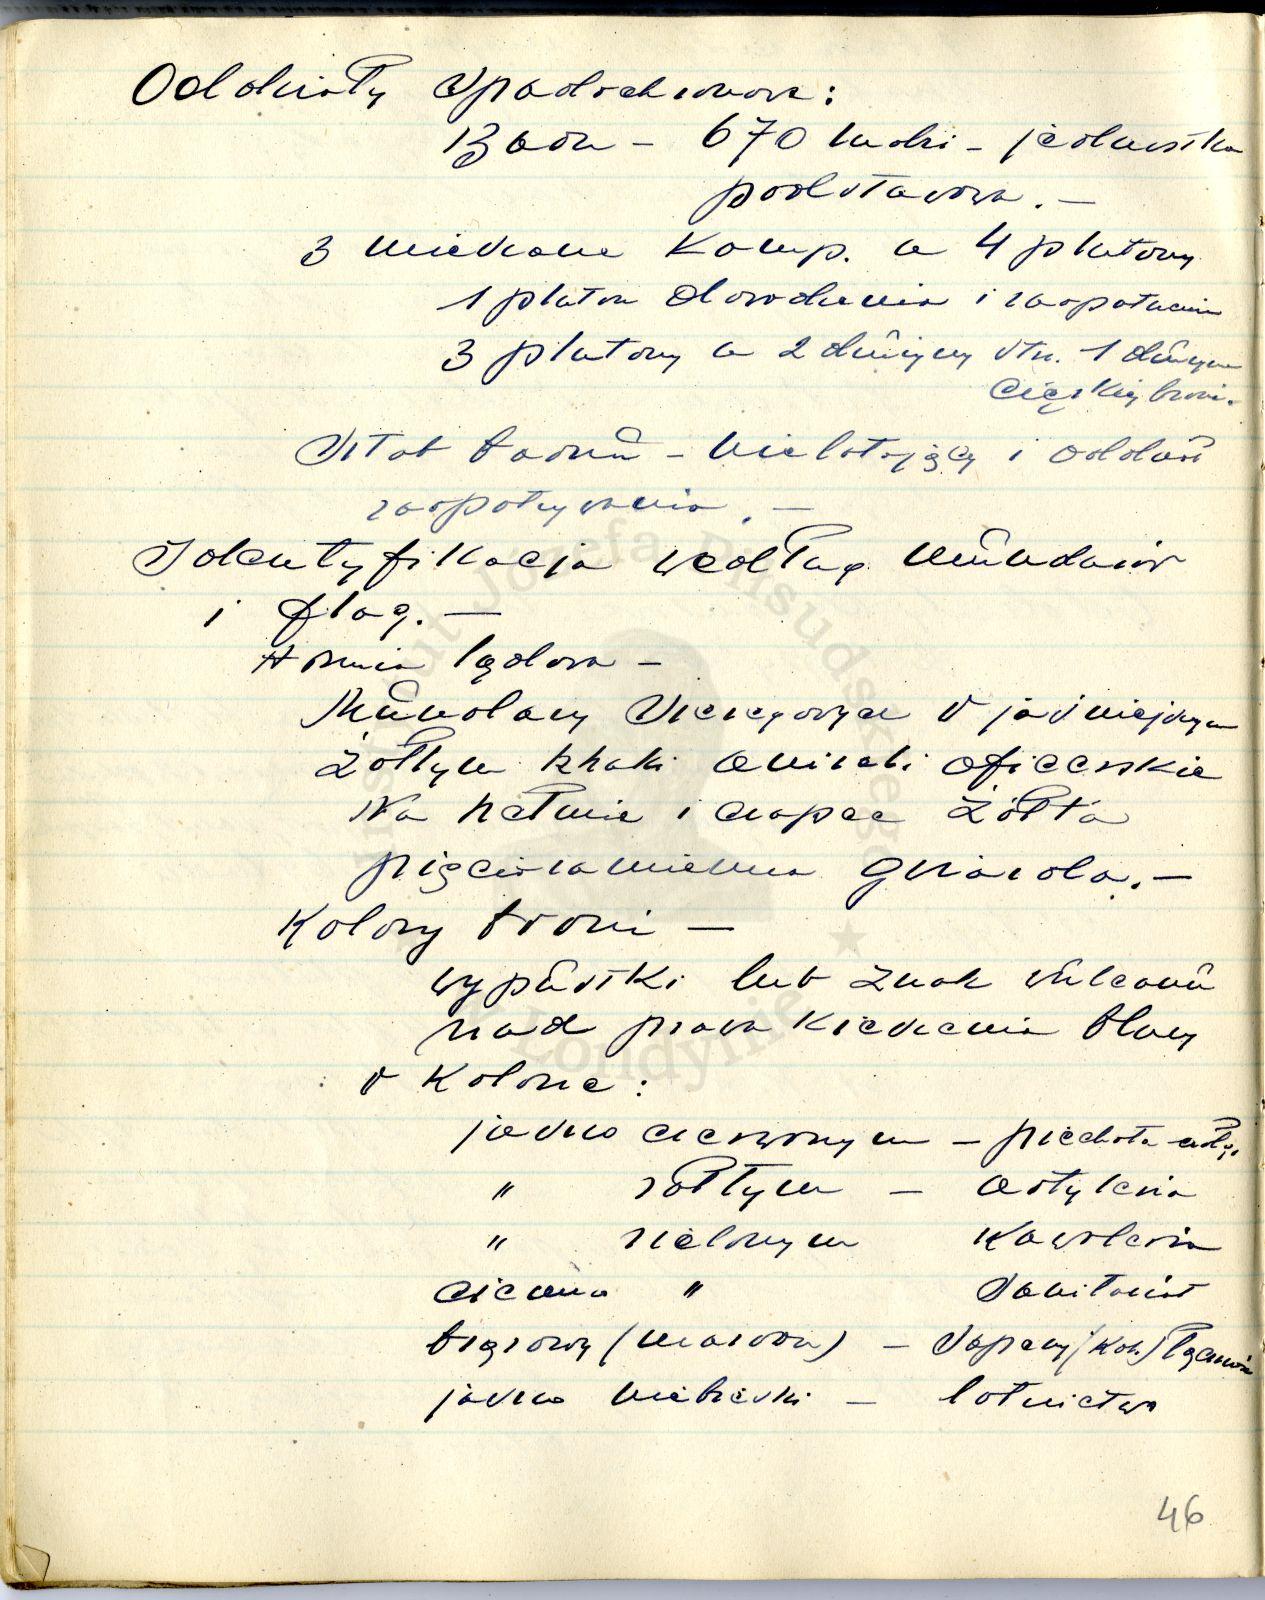 Oddziały Spadochronowe:
Baon - 670 ludzi - jednostka
podstawowa. -
3 mieszane Komp. a 4 plutony
1 pluton dowodzenia i zaopatrzenia
3 plutony a 2 drużyny strz. 1 drużyna
ciężkiej broni.
Sztab baonu - nielatający i oddział
zaopatrywania. -
Identyfikacja według mundurów
i flag. -
Armia lądowa -
Mundury szeregowych w jaśniejszym
żółtym khaki aniżeli oficerskie
Na hełmie i czapce żółta
pięcioramienna gwiazda. -
Kolory broni -
wypustki lub znak
nad prawą kieszenią bluzy
w kolorze:
jasno czerwonym - piechota czołgi
" żółtym - artyleria
" zielonym Kawaleria
ciemno " Sanitariat
brązowy ( ) - Saperzy (Kol.) Łączność
jasno niebieski - lotnictwo
46
Instytut Józefa Piłsudskiego
w Londynie